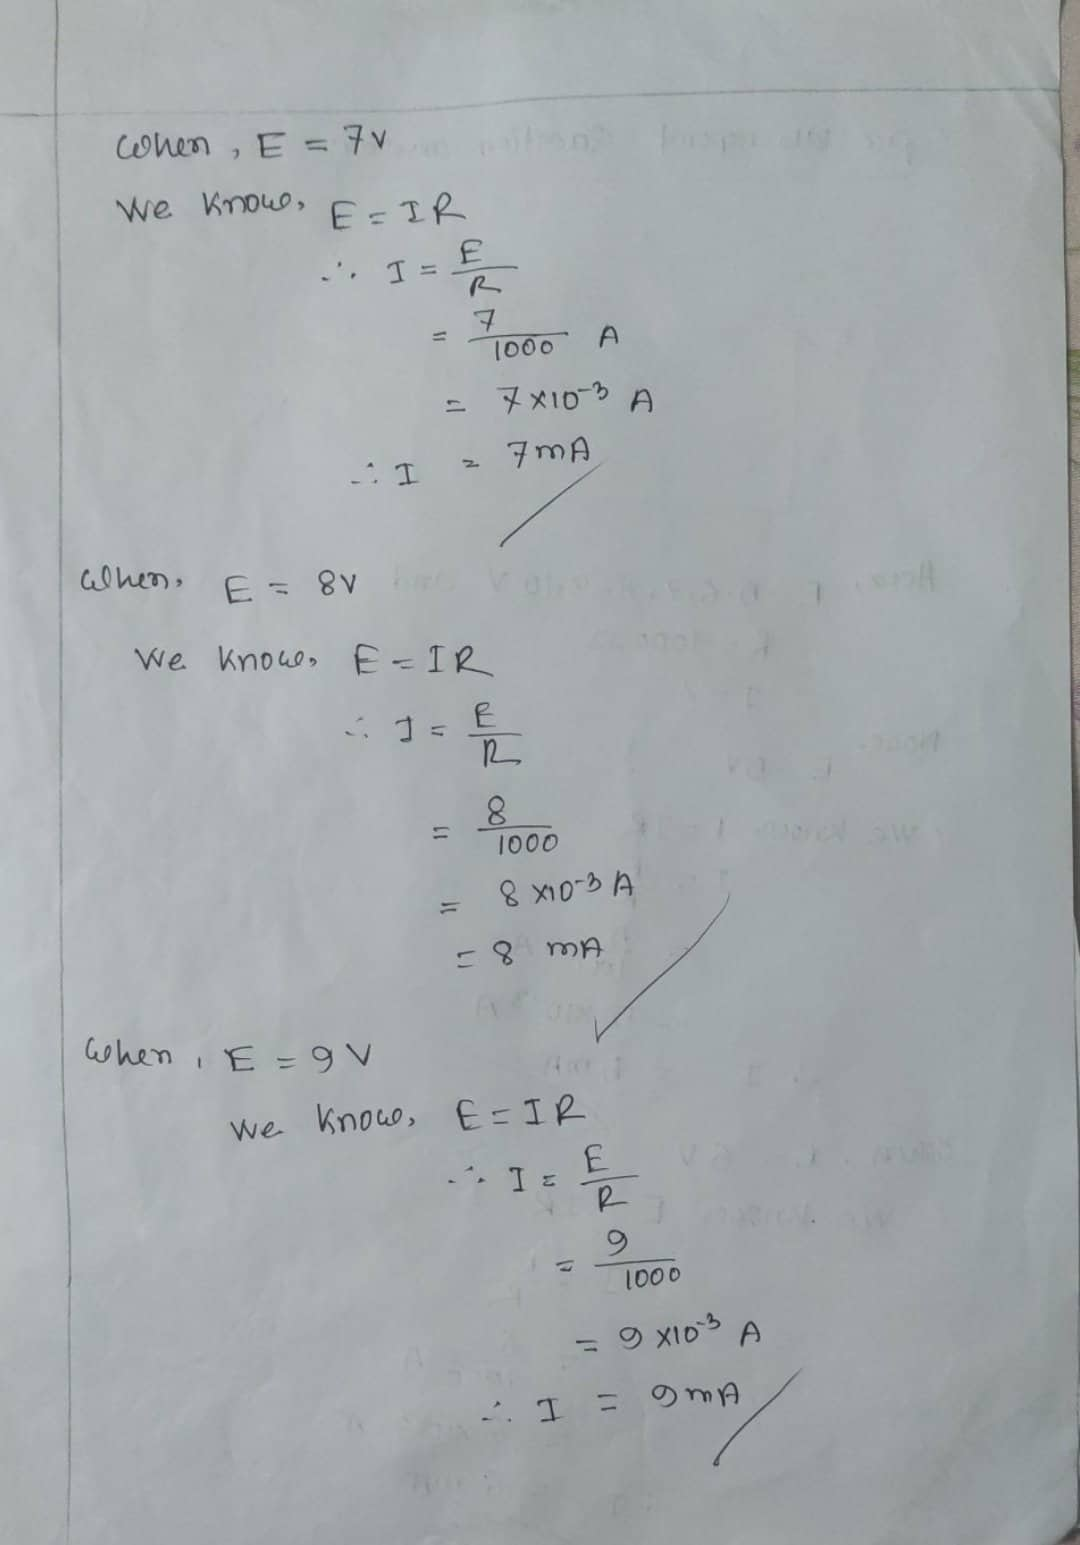 When, E = 7v
We know, E = IR
∴ I = E/R
= 7/1000 A
= 7 x10⁻³ A
∴ I = 7mA
When, E = 8v
We know, E = IR
∴ I = E/R
= 8/1000
= 8 x10⁻³ A
= 8 mA
When, E = 9 V
We know, E = IR
∴ I = E/R
= 9/1000
= 9 x10⁻³ A
∴ I = 9mA